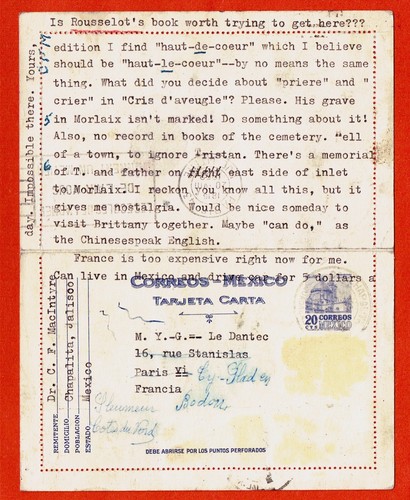 Is Rousselot's book worth trying to get here???
edition I find "haut-de-coeur" which I believe
should be "haut-le-coeur"--by no means the same
thing. What did you decide about "priere" and "
crier" in "Cris d'aveugle"? Please. His grave
in Morlaix isn't marked! Do something about it!
Also, no record in books of the cemetery. "ell
of a town, to ignore Tristan. There's a memorial
of T. and father on east side of inlet
to Morlaix. I reckon you know all this, but it
gives me nostalgia. Would be nice someday to
visit Brittany together. Maybe "can do," as
the Chinesespeak English.
France is too expensive right now for me.
Can live in Mexico and drive car for 5 dollars a
day. Impossible there. Yours,
CORREOS-MEXICO
TARJETA CARTA
20
CTS
MEXICO
M. Y.-G.-- Le Dantec
16, rue Stanislas
Paris VI
Francia
REMITENTE Dr. C. F. MacIntyre
DOMICILIO
POBLACION Chapalita, Jalisco
ESTADO Mexico
DEBE ABRIRSE POR LOS PUNTOS PERFORADOS